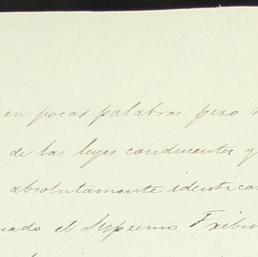 en pocas palabras pero
de las leyes conducentes y
absolutamente identicos
el Supremo Tribun